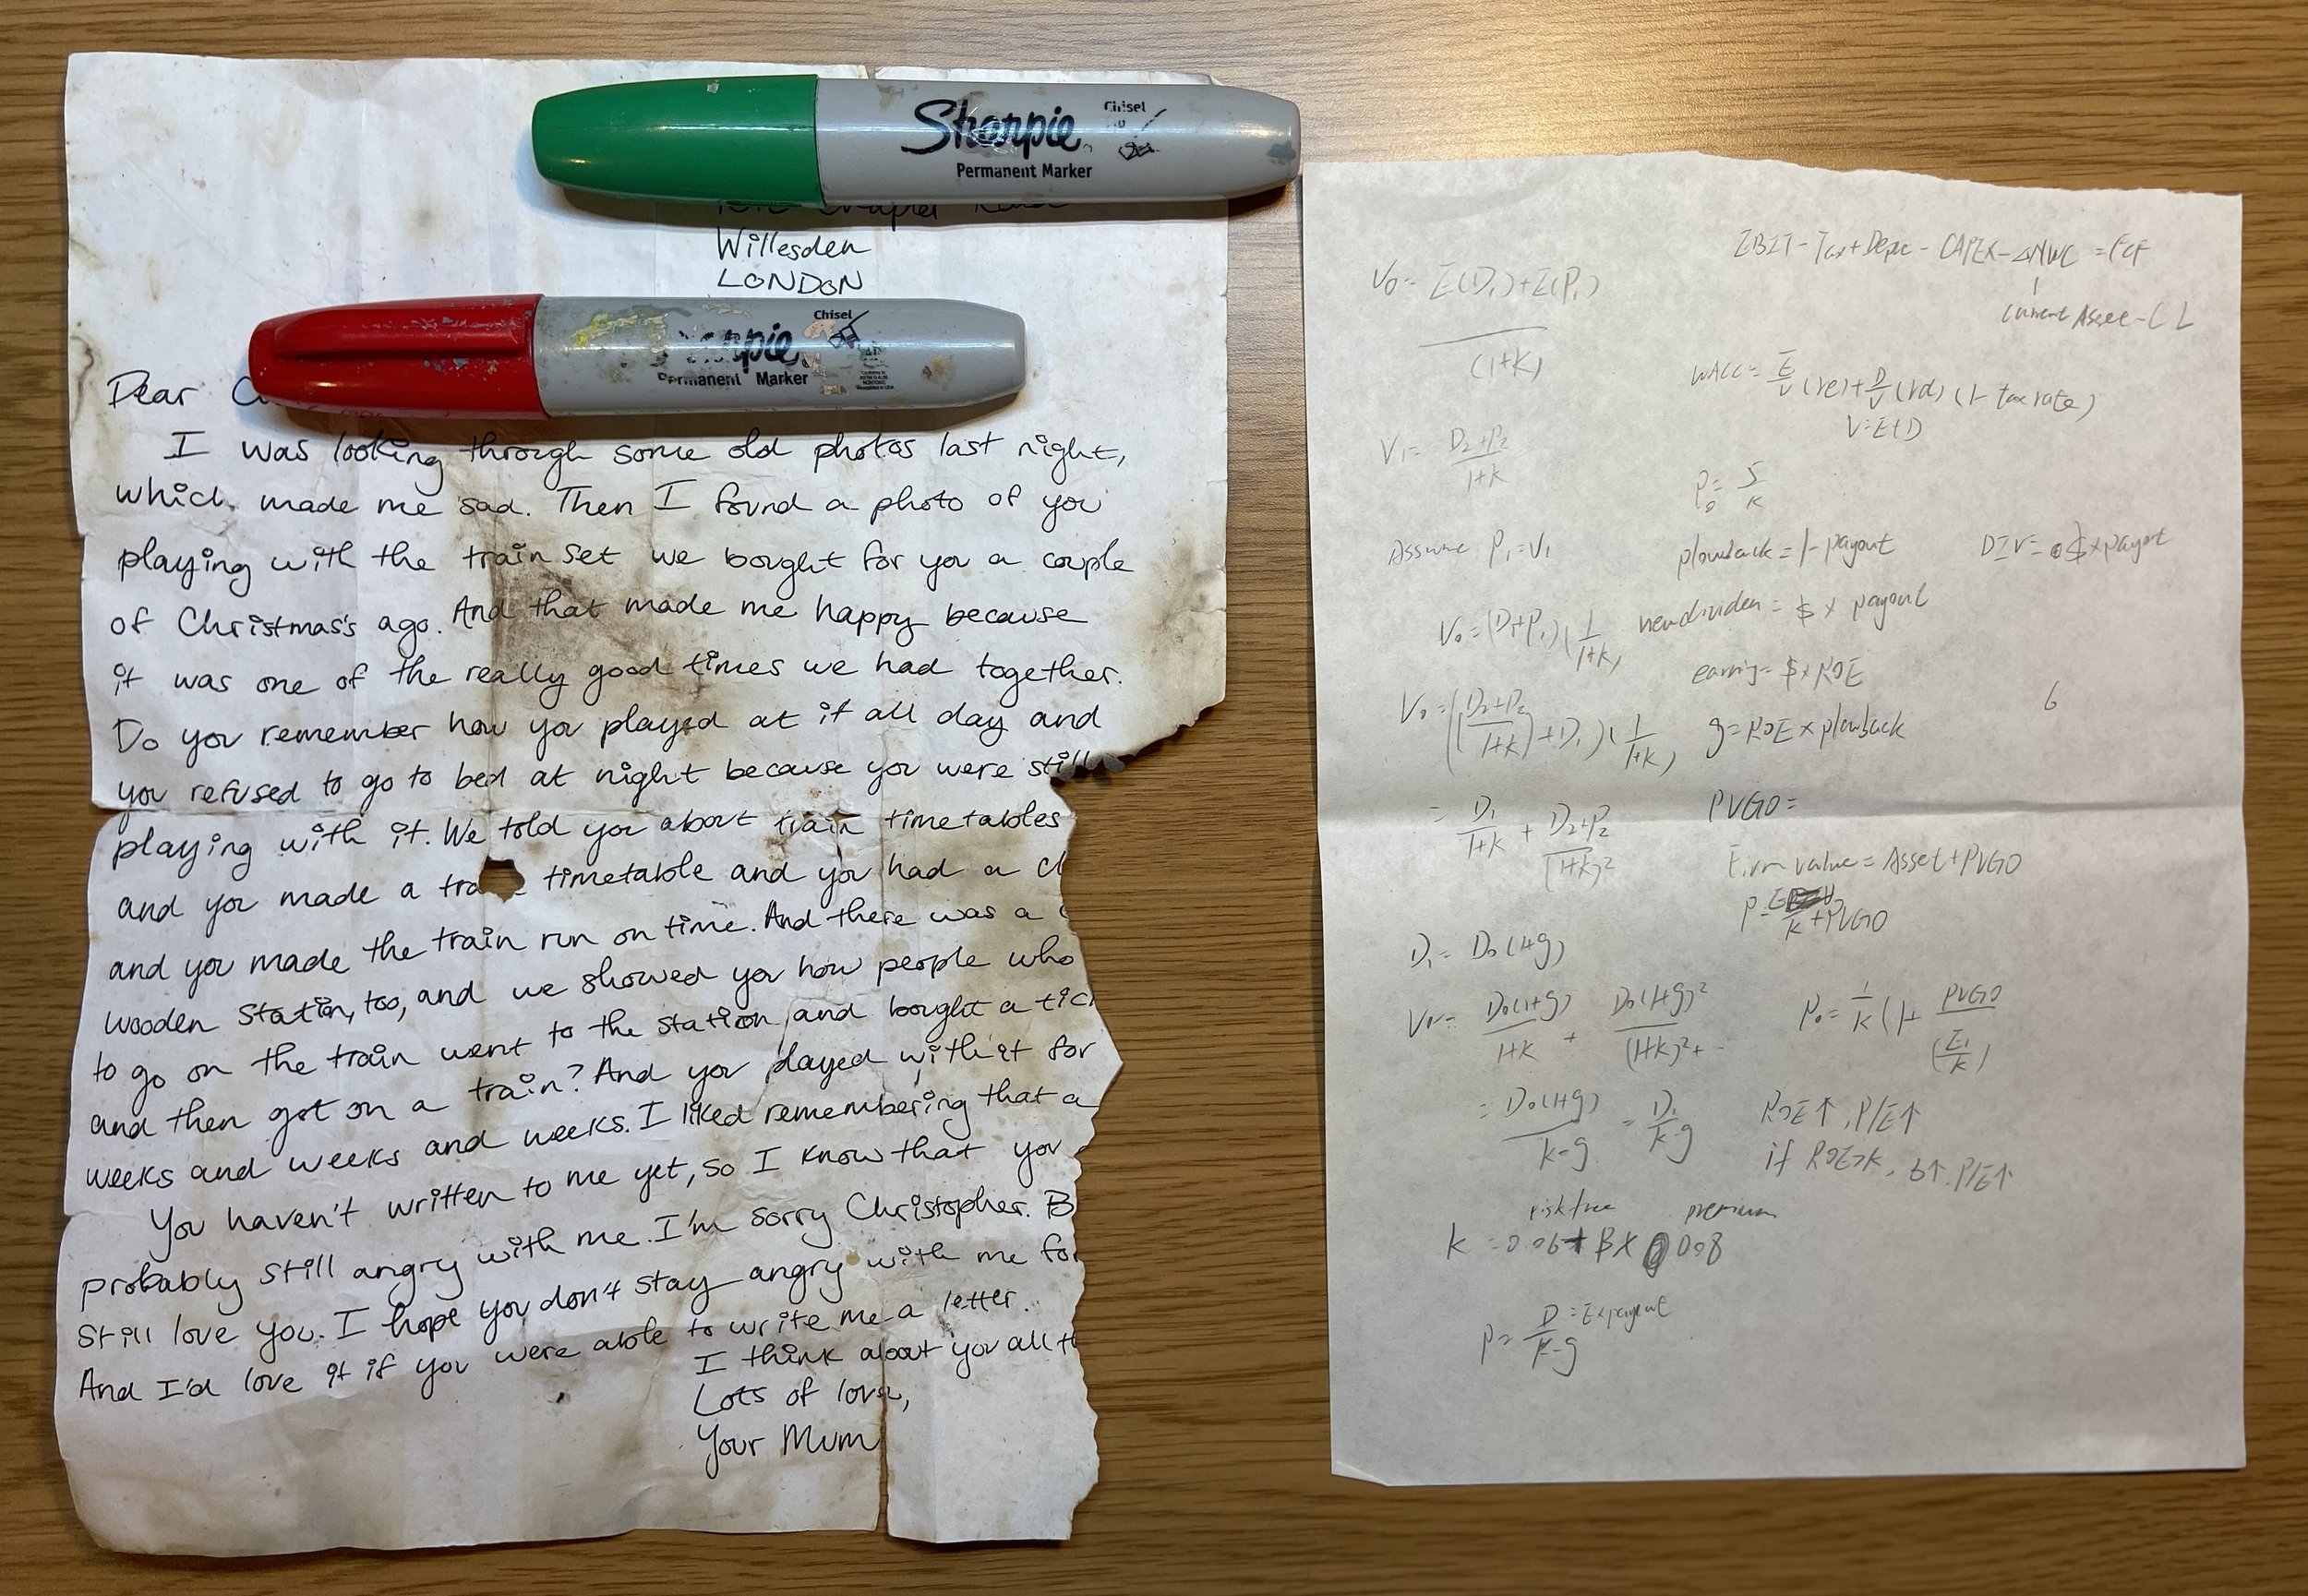 Sharpie
Permanent Marker
Chisel
Willesden
LONDON
Permanent Marker
Chisel
Dear
I was looking through some old photos last night,
which made me sad. Then I found a photo of you
playing with the train set we bought for you a couple
of Christmas's ago. And that made me happy because
it was one of the really good times we had together.
Do you remember how you played at it all day and
you refused to go to bed at night because you were still
playing with it. We told you about train timetables
and you made a timetable and you had a
and you made the train run on time. And there was a
wooden station, too, and we showed you how people who
to go on the train went to the station and bought a
and then got on a train? And you played with it for
weeks and weeks and weeks. I liked remembering that a
You haven't written to me yet, so I know that you
probably still angry with me. I'm sorry Christopher.
Still love you. I hope you don't stay angry with me
And I'd love it if you were able to write me a letter.
I think about you all
Lots of love,
Your Mum
EBIT-Tax+Depre-CAPEX-ΔNWC=FCF
Current Asset-CL
V₀=E(D₁)+E(P₁)/(1+k)
WACC=E/V(re)+D/V(rd)(1-tax rate)
V=E+D
V₁=D₂+P₂/1+k
P₀=5/k
Assume P₁=V₁
plowback=1-payout
DIV=$×payout
V₀=(D₁+P₁)(1/1+k)
new dividen=$×payout
earning=$×ROE
V₀=((D₂+P₂/1+k)+D₁)(1/1+k)
g=ROE×plowback
b
=D₁/1+k+D₂+P₂/(1+k)²
PVGO=
Firm value=Asset+PVGO
k+PVGO
D₁=D₀(1+g)
V₀=D₀(1+g)/1+k+D₀(1+g)²/(1+k)²+
P₀=1/k(1+PVGO/(E₁/k)
=D₀(1+g)/k-g=D₁/k-g
ROE↑,P/E↑
if ROE>k, b↑ P/E↑
risk free premium
k=0.06+β×0.08
P=D/k-g
=E×payout